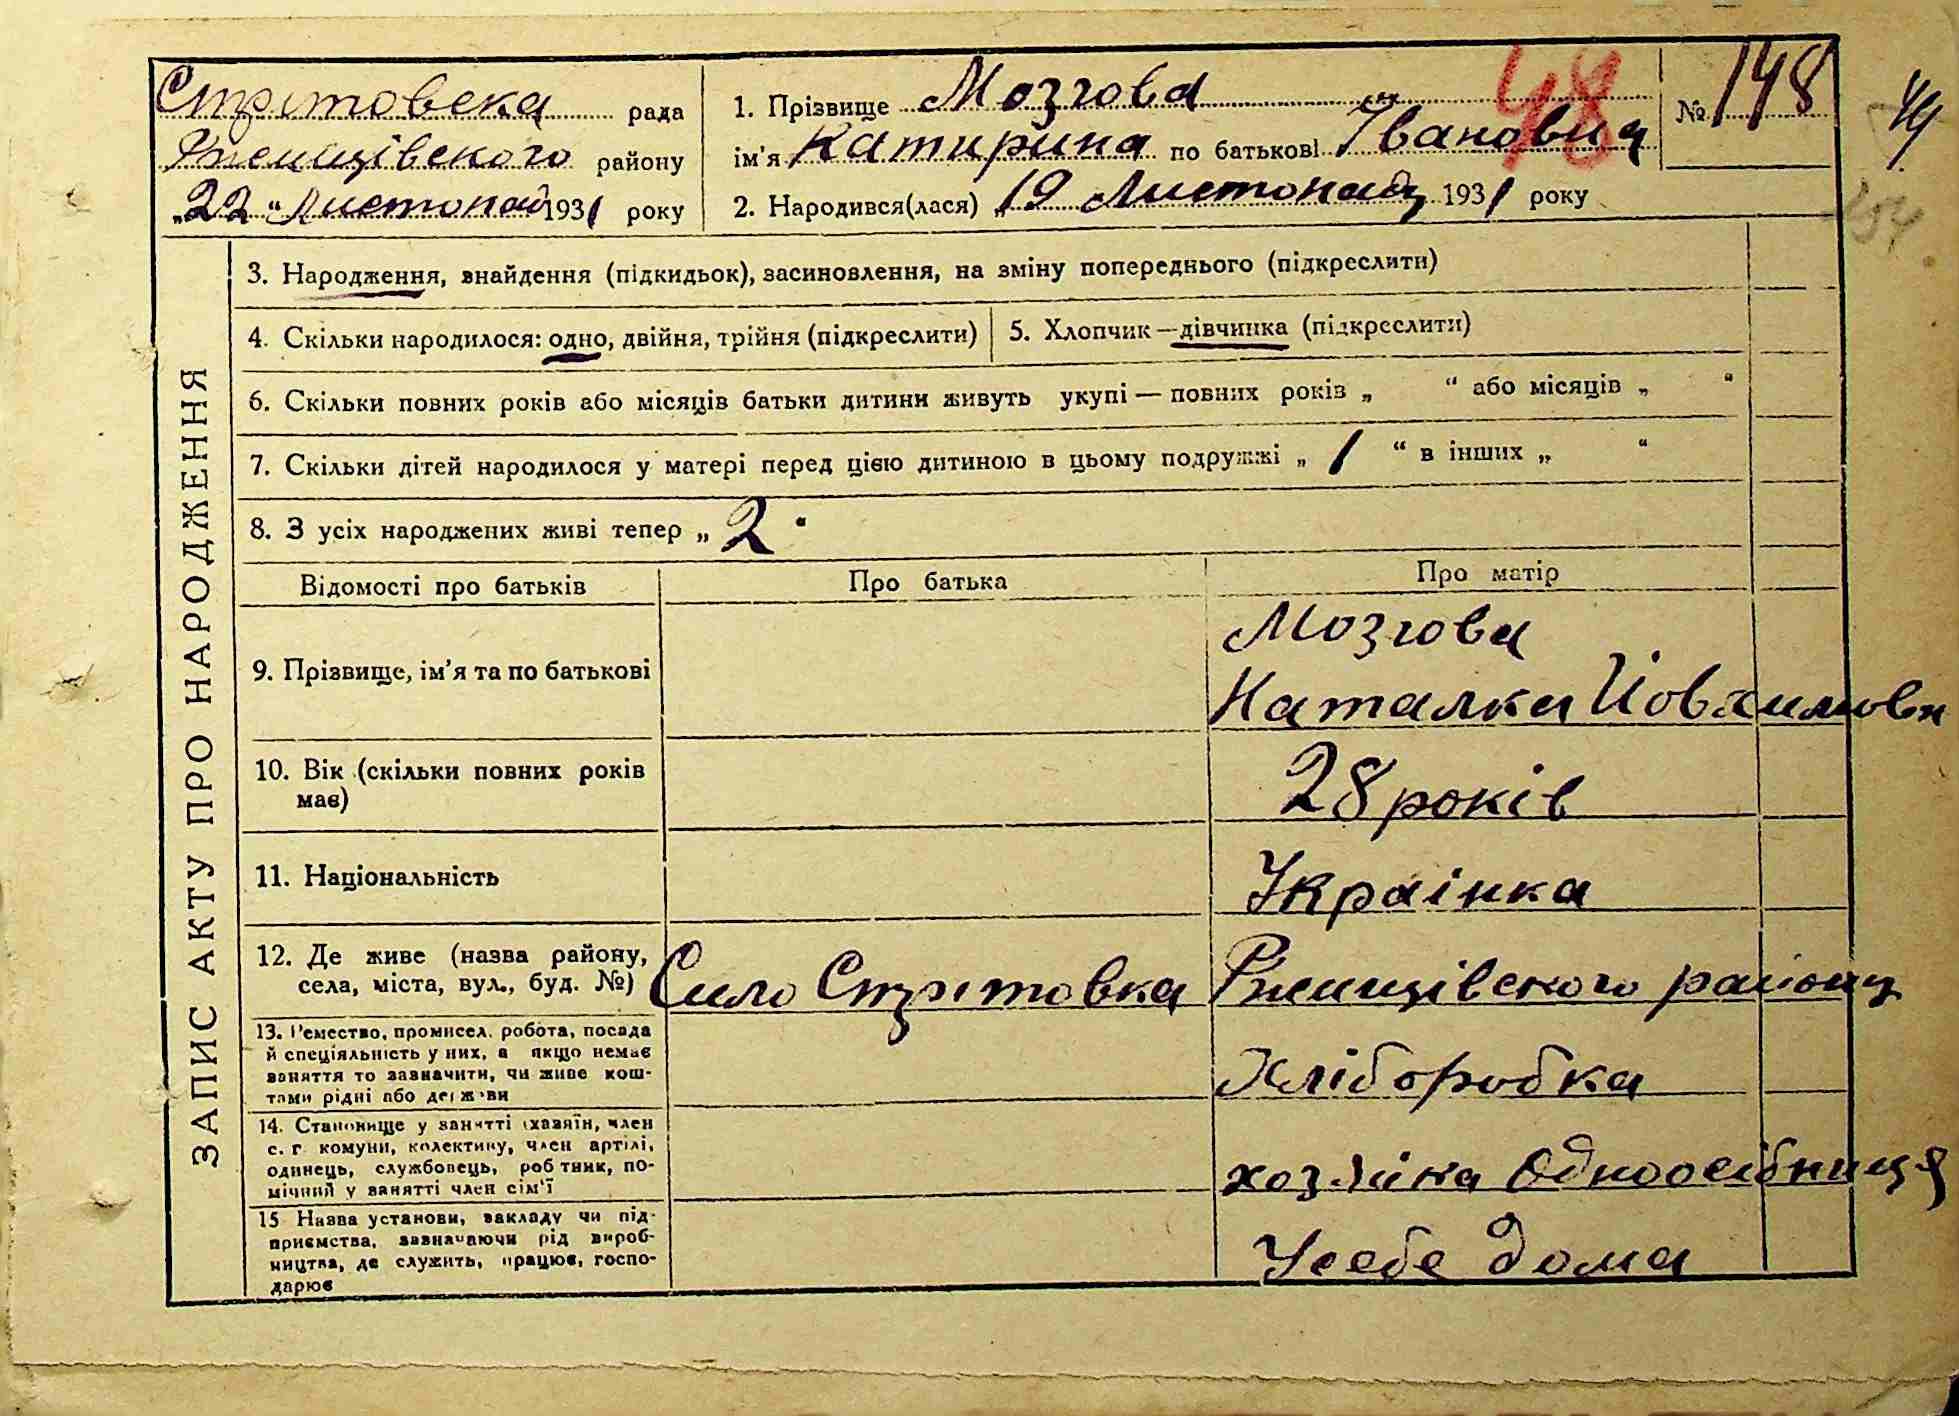 Стрітовска рада
Ржищівского району
„22“ Листопад 1931 року
1. Прізвище Мозгова
ім'я Катирина по батькові Івановна
2. Народився(лася) „19 Листопада 1931 року
№ 148
48
49
204
ЗАПИС АКТУ ПРО НАРОДЖЕННЯ
3. Народження, внайдення (підкидьок), засиновлення, на зміну попереднього (підкреслити)
4. Скільки народилося: одно, двійня, трійня (підкреслити)
5. Хлопчик — дівчинка (підкреслити)
6. Скільки повних років або місяців батьки дитини живуть укупі — повних років „ “ або місяців „ “
7. Скільки дітей народилося у матері перед цією дитиною в цьому подружжі „ 1 “ в інших „ “
8. З усіх народжених живі тепер „ 2 “
Відомості про батьків
Про батька
Про матір
9. Прізвище, ім'я та по батькові
Мозгова
Наталка Йовхимовн
10. Вік (скільки повних років
має)
28 років
11. Національність
Украінка
12. Де живе (назва району,
села, міста, вул., буд. №)
Сило Стрітовка Ржищівского району
13. Ремество, промисел, робота, посада
й спеціяльність у них, а якщо немає
заняття то зазначити, чи живе кош-
тами рідні або держави
Хліборобка
14. Становище у занятті (хазяїн, член
с. г. комуни, колективу, член артілі,
одинець, службовець, робітник, по-
мічний у занятті член сім'ї
хозяйка Одноосібниця
15 Назва установи, закладу чи під-
приємства, зазначаючи рід вироб-
ництва, де служить, працює, госпо-
дарює
Усебе дома